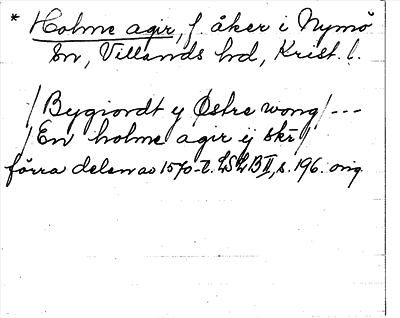 * Holme agir, f. åker i Nymö
Sn, Villands hd, Krist. l.
/Bygiordt y Østre wong/ ---
/En holme agir ij skr/
förra delen av 1570-t. LSLB II, s. 196. orig.